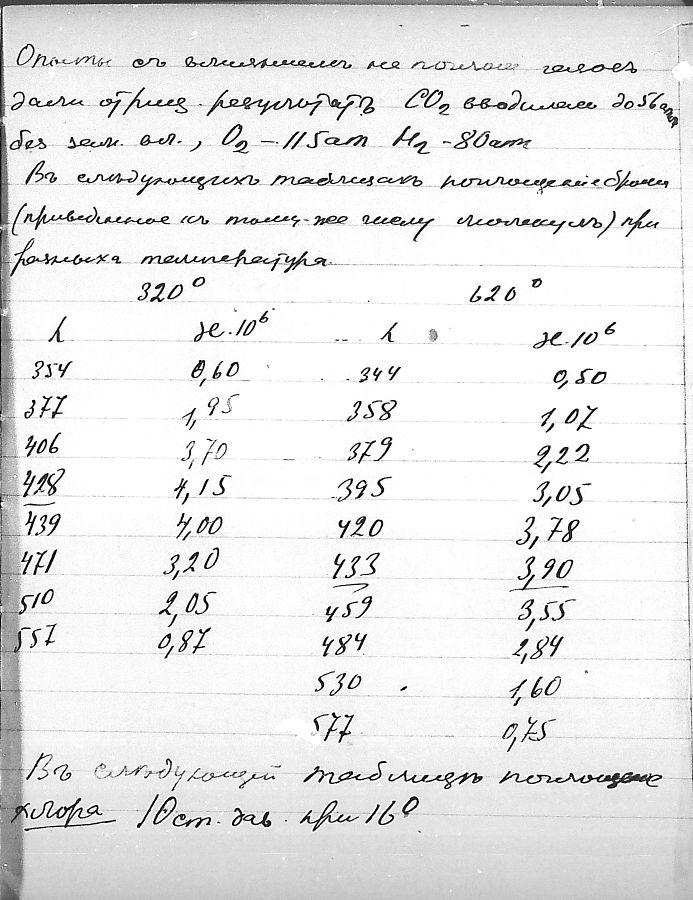 Опыты съ влияниемъ на поглощ газовъ
дали отриц. результатъ CO2 вводилась до 56 атм
без зам. вл., O2 – 115 ат H2 - 80 атм
Въ следующихъ таблицахъ поглощение брома
(приведенное къ тому-же числу молекулъ) при
разныхъ температура
320° 620°
λ ϰ.10⁶ λ ϰ.10⁶
354 0,60 344 0,50
377 1,95 358 1,07
406 3,70 379 2,22
428 4,15 395 3,05
439 4,00 420 3,78
471 3,20 433 3,90
510 2,05 459 3,55
557 0,87 484 2,84
530 1,60
577 0,75
Въ следующей таблицъ поглощение
хлора 10 ст. дав. при 16°